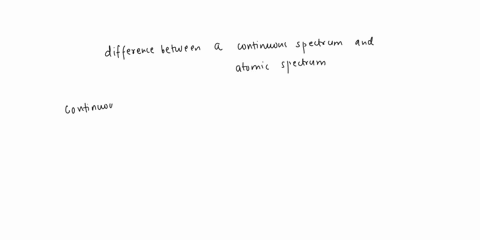 difference between a continuous spectrum and
atomic spectrum
continuou